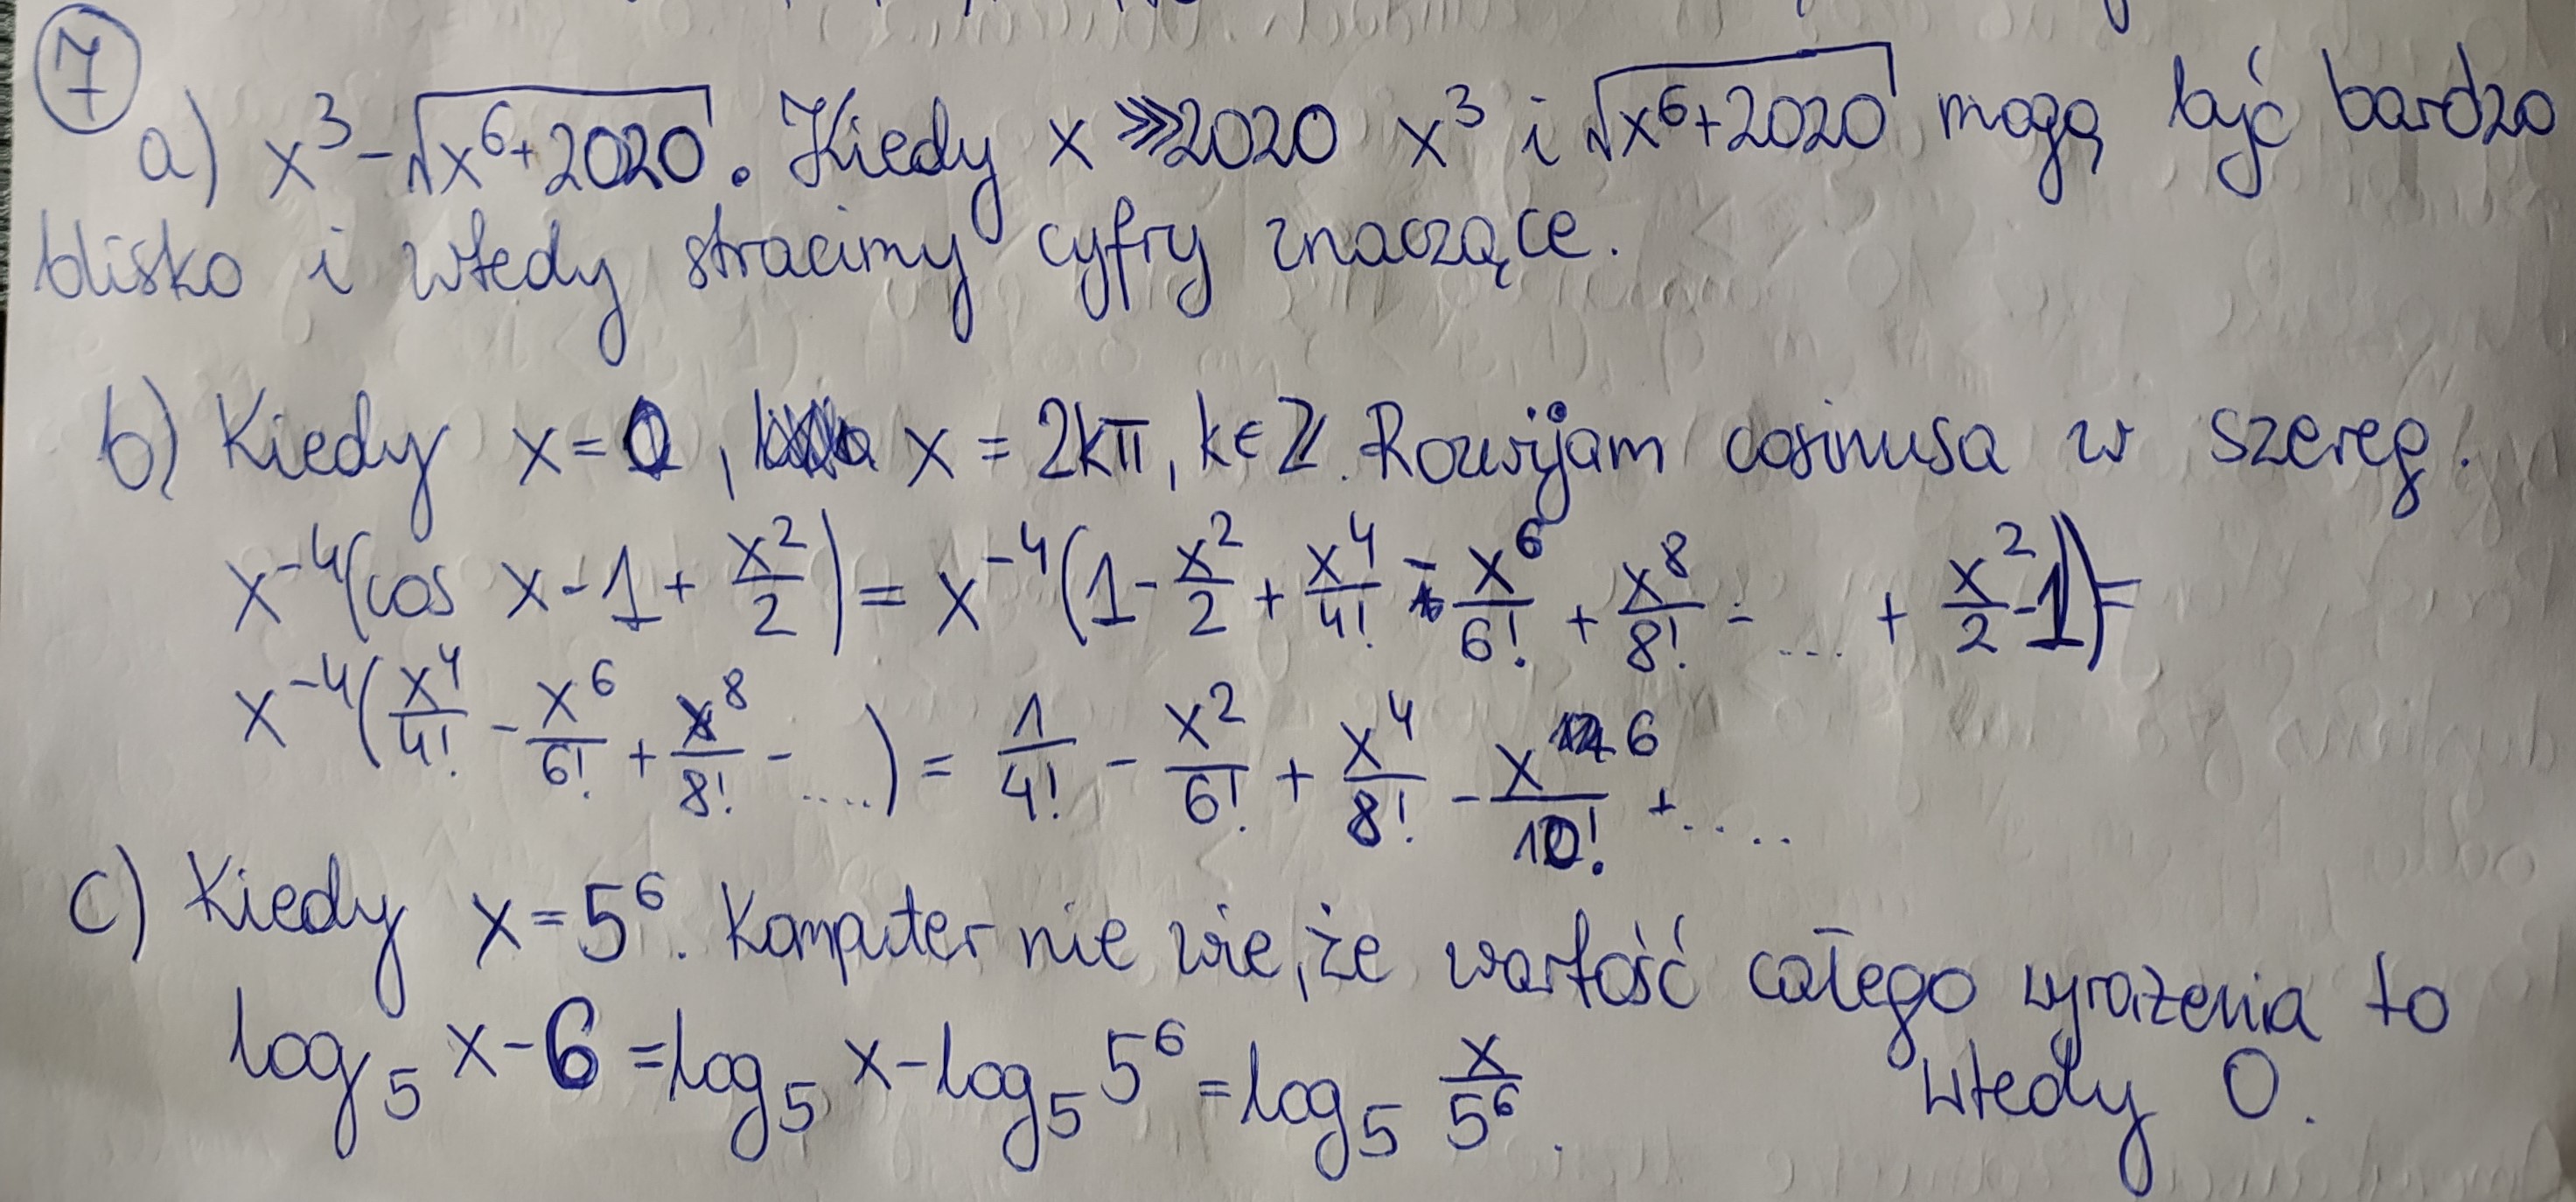 7
a) x³ - √(x⁶+2020). Kiedy x ⋙ 2020 x³ i √(x⁶+2020) mogą być bardzo
blisko i wtedy stracimy cyfry znaczące.
b) Kiedy x = 0, x = 2kπ, k∈ℤ. Rozwijam cosinusa w szereg.
x⁻⁴(cos x - 1 + x²/2) = x⁻⁴(1 - x²/2 + x⁴/4! - x⁶/6! + x⁸/8! - .... + x²/2 - 1) =
x⁻⁴(x⁴/4! - x⁶/6! + x⁸/8! - ....) = 1/4! - x²/6! + x⁴/8! - x⁶/10! + ....
c) Kiedy x = 5⁶. Komputer nie wie, że wartość całego wyrażenia to
wtedy 0.
log₅ x - 6 = log₅ x - log₅ 5⁶ = log₅ x/5⁶.